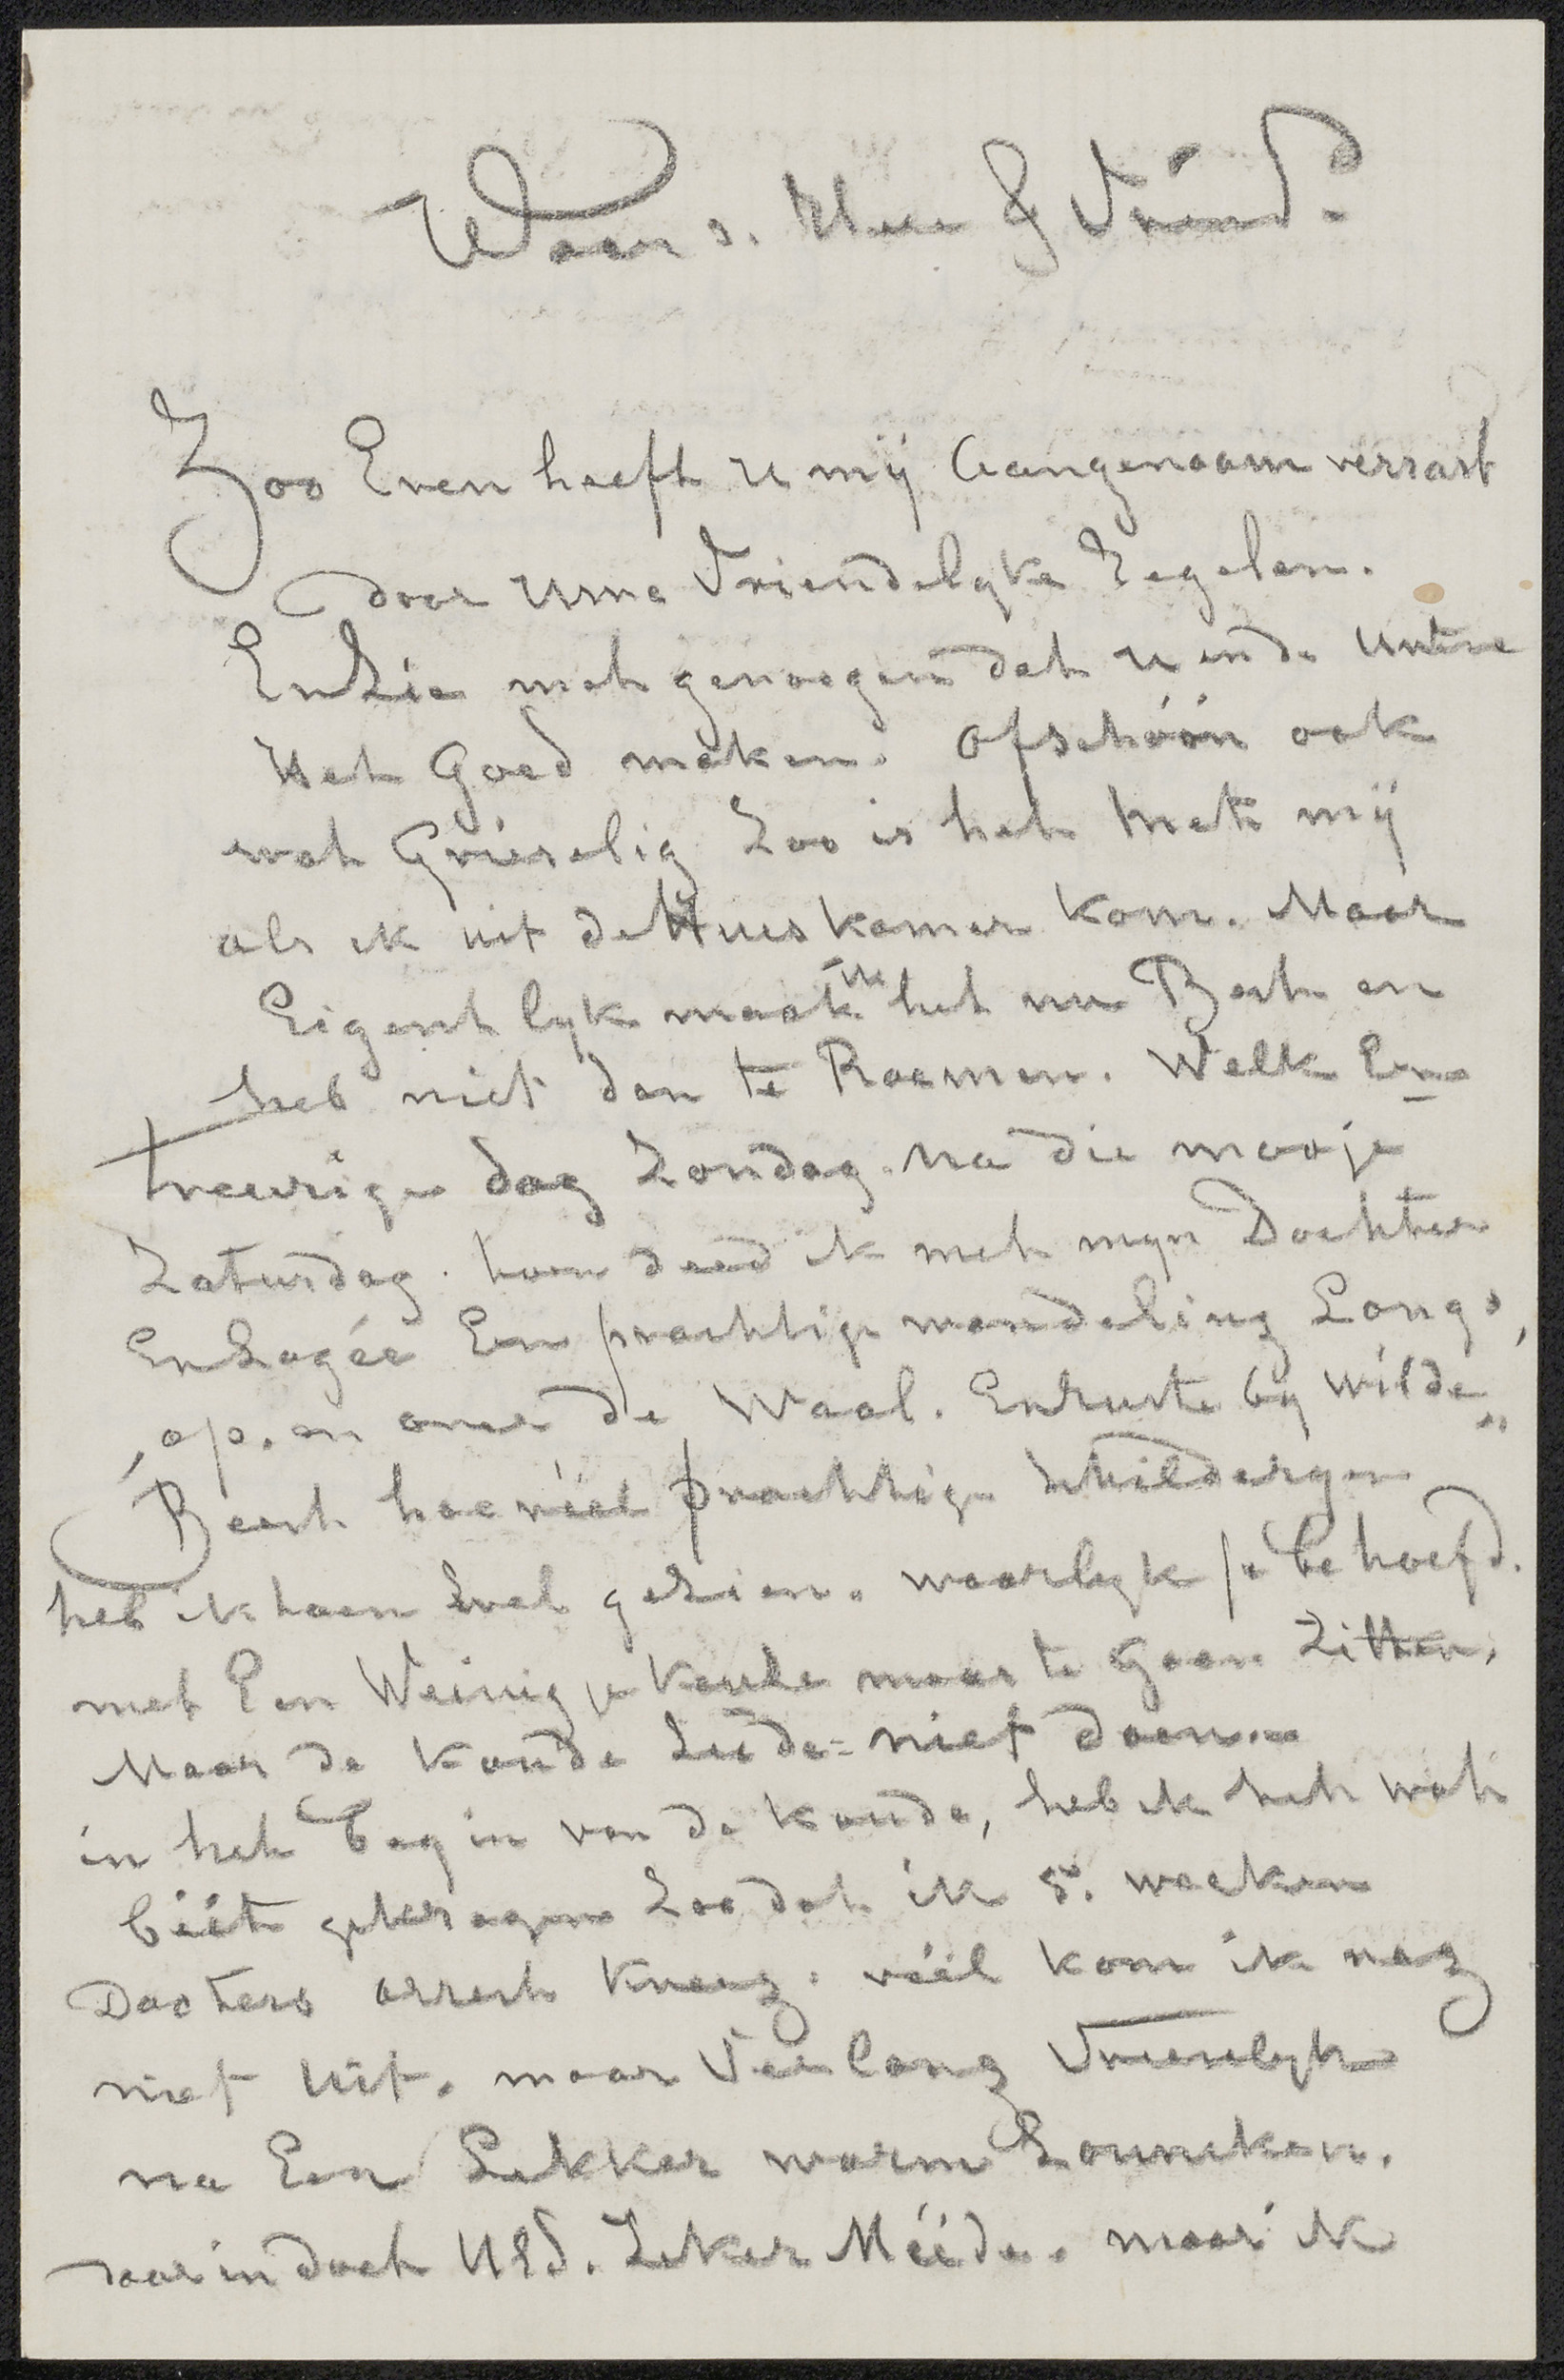 Waar s. Heer & Vriend.
Zoo Even heeft u mij Aangenaam verrast
door Uwe Vriendelyke Regelen.
En Zie meh genoegen dah u en de Untere
Heh Goed maken. Ofschóón ook
wah Grieselig Zoo is heh met mij
als ik uit de Huuskamer kom. Maar
Eigenhlyk maak ik heh nu Besh en
heb niet dan te Roemen. Welk Een
treurige dag Zondag. na die mooje
Zaturdag. toen deed ik meh myn Dochter
En Logée Een prachtige wandeling Langs,
, op. en over de Waal. En Ruste by Wilde„
Beesh hoe véél prachtige Schilderyen
heb ik toen wel gezien. waarlyk je behoefd.
met Een Weinigje Koude maar te Gaan Zitten.
Maar de Koude Leede= niet doen..
in heh begin van de koude, heb ik heh wah
béét gekregen Zoo dah ik 5. weeken
Docters arresh Kreeg. véél kom ik nog
niet Uit. maar Verlang Vreeselyk
na Een Lekker warm Zonneken.
daar in doeh UEd. Zeker Méede. maar ik